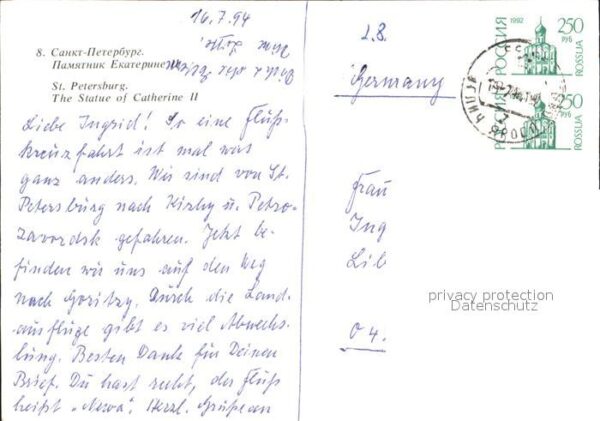 16.7.94
8. Санкт-Петербург.
Памятник Екатерине
St. Petersburg.
The Statue of Catherine II
Liebe Ingrid! So eine Fluß-
kreuzfahrt ist mal was
ganz anders. Wir sind von St.
Petersburg nach Kizhy u. Petro-
zavordsk gefahren. Jetzt be-
finden wir uns auf den Weg
nach Goritzy. Durch die Land-
ausflüge gibt es viel Abwechs-
lung. Besten Dank für Deinen
Brief. Du hast recht, der Fluß
heißt "Newa". Herzl. Grüße an
Germany
РОССИЯ 1992 250
руб
ROSSIJA
РОССИЯ 250
руб
ROSSIJA
Frau
Ing
Lib
04.
privacy protection
Datenschutz